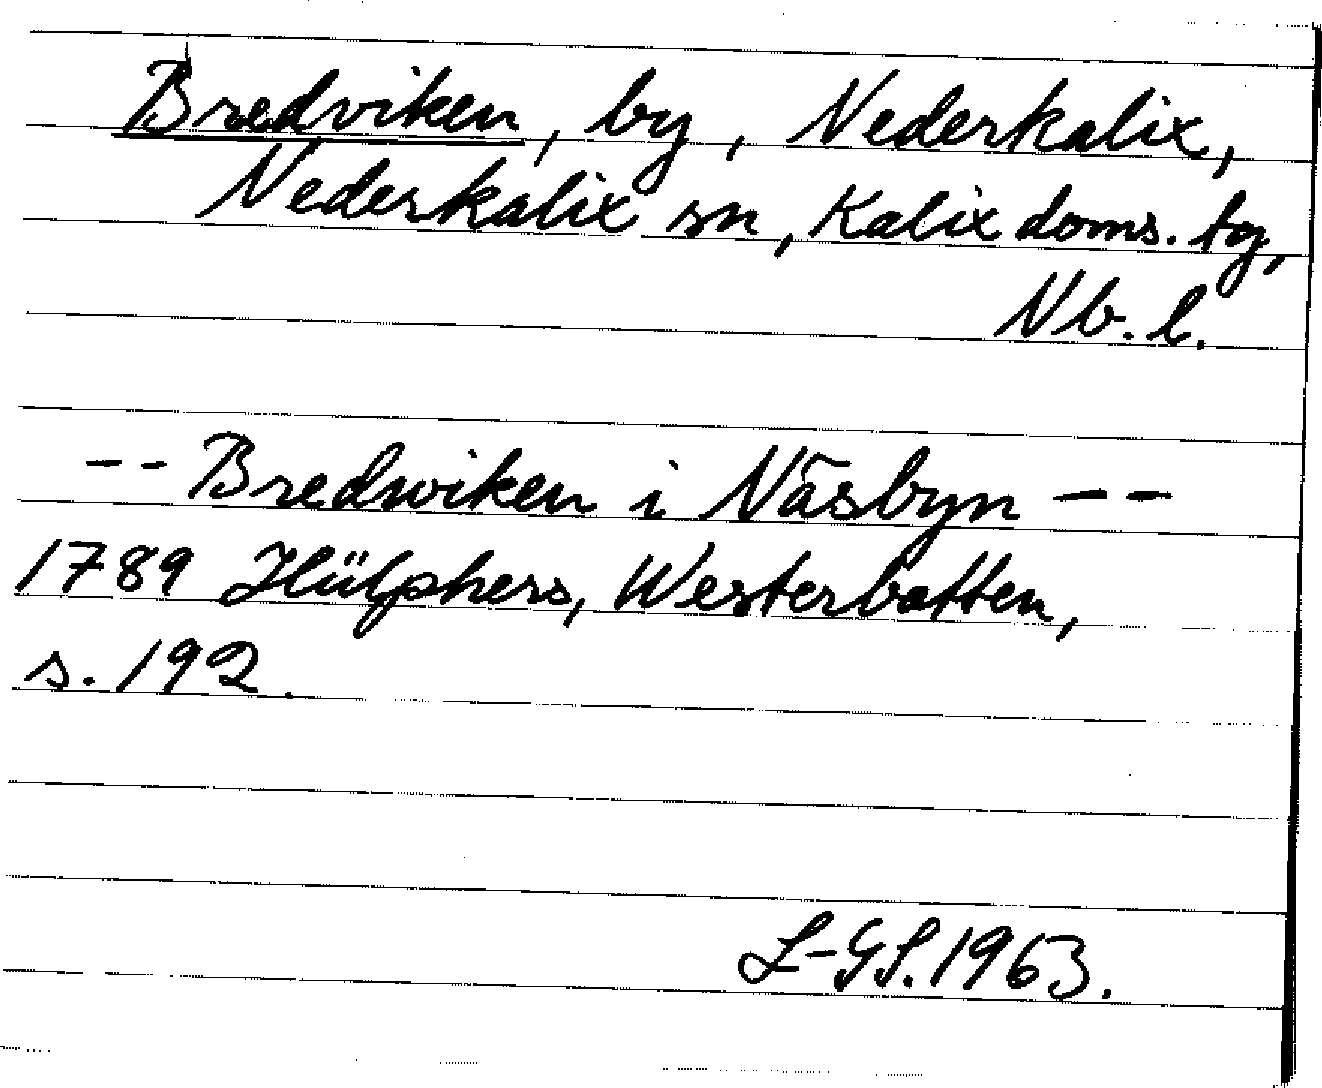 Bredviken, by, Nederkalix,
Nederkalix sn, Kalix doms. tg,
Nb. l.
-- Bredwiken i Näsbyn --
1789 Hülphers, Westerbotten,
s. 192.
L-GS. 1963.